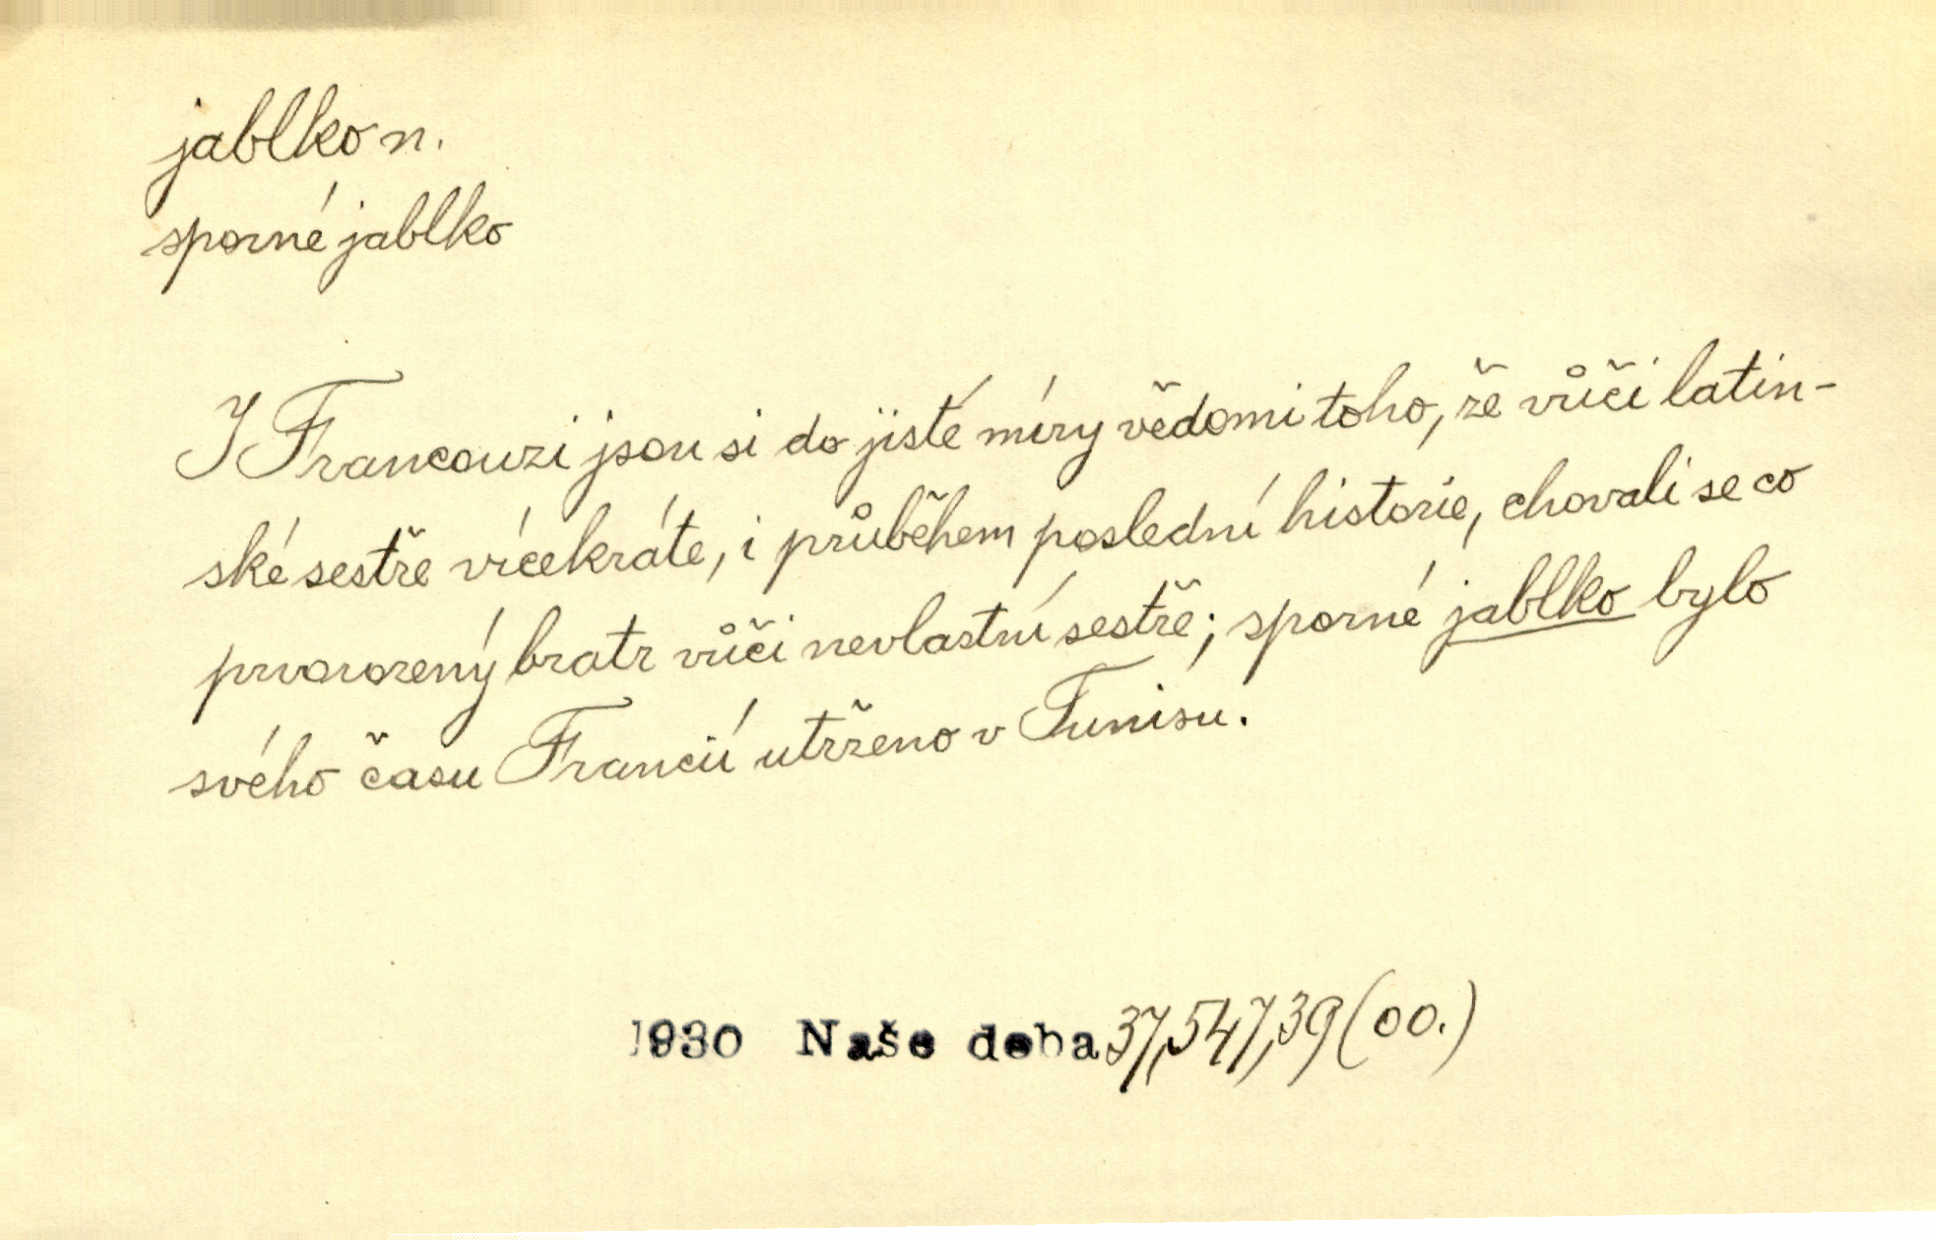 jablko n.
sporné jablko
I Francouzi jsou si do jisté míry vědomi toho, že vůči latin-
ské sestře vícekráte, i průběhem poslední historie, chovali se co
prvorozený bratr vůči nevlastní sestře; sporné jablko bylo
svého času Francií utrženo v Tunisu.
1930 Naše doba 37,547,39 (oo.)